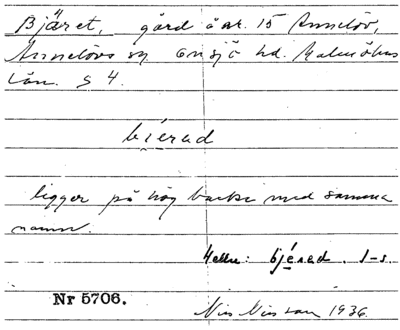 Bjäret, gård å nr. 15 Annelöv,
Annelövs sn Onsjö hd. Malmöhus
län. S 4.
bierad
ligger på hög backe med samma
namn.
Heller: bjerad. I-s.
Nr 5706.
Nils Nilsson 1936.